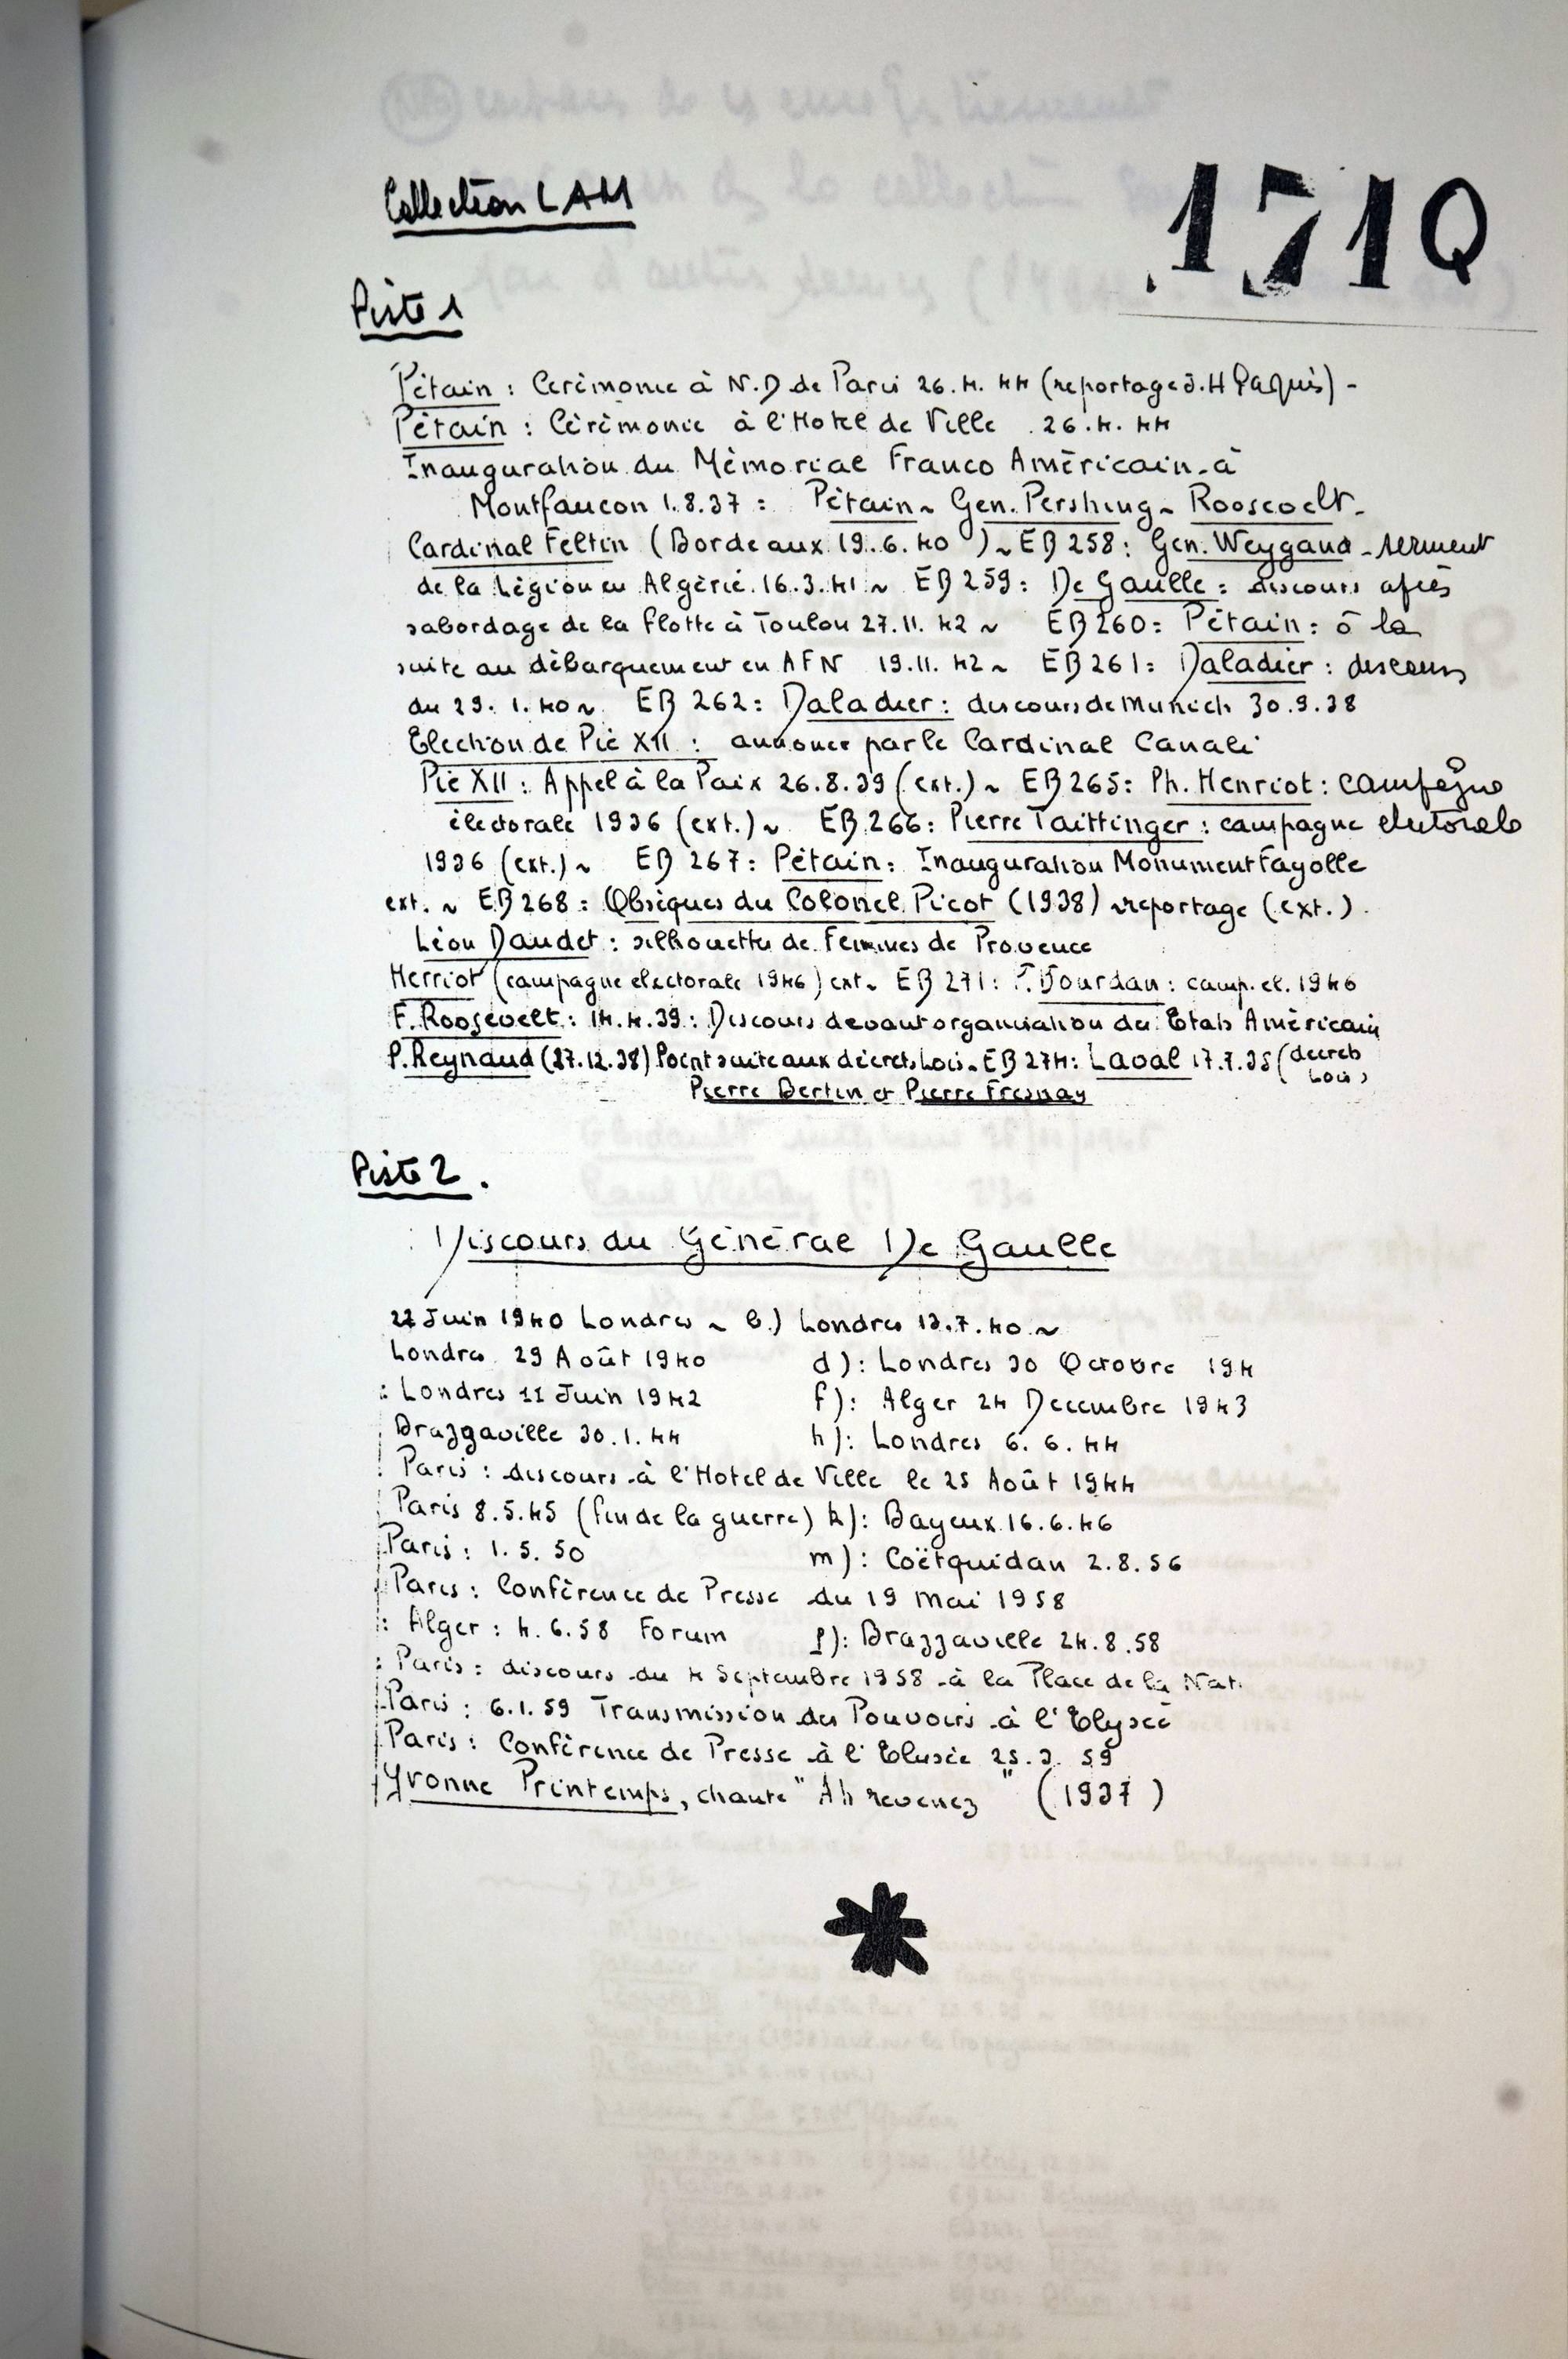 Collection LAM
1710
Piste 1
Pétain : Cérémonie à N.D de Paris 26.4.44 (reportage J.H Paquis) -
Pétain : Cérémonie à l'Hotel de Ville . 26.4.44
Inauguration du Mémorial Franco Américain à
Montfaucon 1.8.37 : Pétain ~ Gen. Pershing ~ Rooseoelt -
Cardinal Feltin (Bordeaux 19.6.40 ) ~ EB 258 : Gen. Weygand - serment
de la Légion en Algérie 16.3.41 ~ EB 259 : De Gaulle : discours après
sabordage de la flotte à Toulon 27.11.42 ~ EB 260 : Pétain : à la
suite au débarquement en AFN 19.11.42 ~ EB 261 : Daladier : discours
du 29.1.40 ~ EB 262 : Daladier : discours de Munich 30.9.38
Election de Pie XII : annonce par le Cardinal Canali
Pie XII : Appel à la Paix 26.8.39 (ext.) ~ EB 265 : Ph. Henriot : campagne
électorale 1936 (ext.) ~ EB 266 : Pierre Taittinger : campagne electorale
1936 (ext.) ~ EB 267 : Pétain : Inauguration Monument Fayolle
ext. ~ EB 268 : Obsèques du Colonel Picot (1938) reportage (ext.)
Léon Daudet : silhouettes de Femmes de Provence
Herriot (campagne electorale 1946) ext ~ EB 271 : Jourdan : camp. el. 1946
F. Roosevelt : 14.4.39 : Discours devant organisation des Etats Américain
P. Reynaud (27.12.38) Point suite aux décrets Lois - EB 274 : Laval 17.7.35 (decrets
Lois)
Pierre Bertin et Pierre Fresnay
Piste 2 .
Discours du Général De Gaulle
22 Juin 1940 Londres ~ b.) Londres 13.7.40 ~
Londres 29 Août 1940 d) : Londres 30 Octobre 194
: Londres 11 Juin 1942 f) : Alger 24 Decembre 1943
Brazzaville 30.1.44 h) : Londres 6.6.44
Paris : discours à l'Hotel de Ville le 25 Août 1944
Paris 8.5.45 (fin de la guerre) k) : Bayeux 16.6.46
Paris : 1.5.50 m) : Coëtquidan 2.8.56
Paris : Conférence de Presse du 19 Mai 1958
: Alger : 4.6.58 Forum p) : Brazzaville 24.8.58
: Paris : discours du 4 Septembre 1958 à la Place de la Nat
Paris : 6.1.59 Transmission des Pouvoirs à l'Elysée
Paris : Conférence de Presse à l'Elysée 25.3.59
Yvonne Printemps, chante "Ah revenez " (1937)